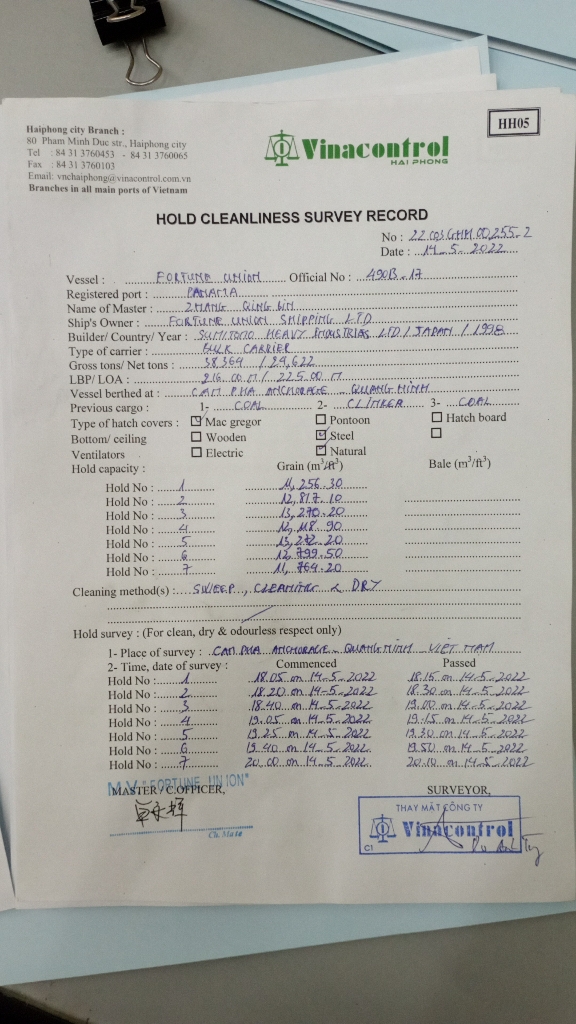 HH05
Haiphong city Branch :
80 Pham Minh Duc str., Haiphong city
Tel : 84 31 3760453 - 84 31 3760065
Fax : 84 31 3760103
Email: vnchaiphong@vinacontrol.com.vn
Branches in all main ports of Vietnam
Vinacontrol
HAI PHONG
HOLD CLEANLINESS SURVEY RECORD
No :
Date : 14.5.2022
Vessel : FORTUNE UNION Official No : 490B.17
Registered port : PANAMA
Name of Master : ZHANG QING
Ship's Owner : FORTUNE UNION SHIPPING LTD
Builder/ Country/ Year : SUMITOMO HEAVY INDUSTRIES LTD / JAPAN / 1998
Type of carrier : BULK CARRIER
Gross tons/ Net tons : 38,364 / 24,622
LBP/ LOA : 216.00 M / 225.00 M
Vessel berthed at : CAM PHA ANCHORAGE - QUANG NINH
Previous cargo 1- COAL 2- CLINKER 3- COAL
Type of hatch covers : Mac gregor Pontoon Hatch board
Bottom/ ceiling Wooden Steel
Ventilators Electric Natural
Hold capacity : Grain (m³/ft³) Bale (m³/ft³)
Hold No : 1 11,256.30
Hold No : 2 12,817.10
Hold No : 3 13,270.20
Hold No : 4 12,118.90
Hold No : 5 13,272.20
Hold No : 6 12,799.50
Hold No : 7 11,764.20
Cleaning method(s) : SWEEP, CLEANING & DRY
Hold survey : (For clean, dry & odourless respect only)
1- Place of survey : CAM PHA ANCHORAGE - QUANG NINH - VIET NAM
2- Time, date of survey : Commenced Passed
Hold No : 1 18.05 on 14-5-2022 18.15 on 14-5-2022
Hold No : 2 18.20 on 14-5-2022 18.30 on 14-5-2022
Hold No : 3 18.40 on 14-5-2022 19.00 on 14-5-2022
Hold No : 4 19.05 on 14-5-2022 19.15 on 14-5-2022
Hold No : 5 19.25 on 14-5-2022 19.30 on 14-5-2022
Hold No : 6 19.40 on 14-5-2022 19.50 on 14-5-2022
Hold No : 7 20.00 on 14-5-2022 20.10 on 14-5-2022
M.V "FORTUNE UNION"
MASTER / C.OFFICER, SURVEYOR,
Ch. Mate
THAY MẶT CÔNG TY
Vinacontrol
C1